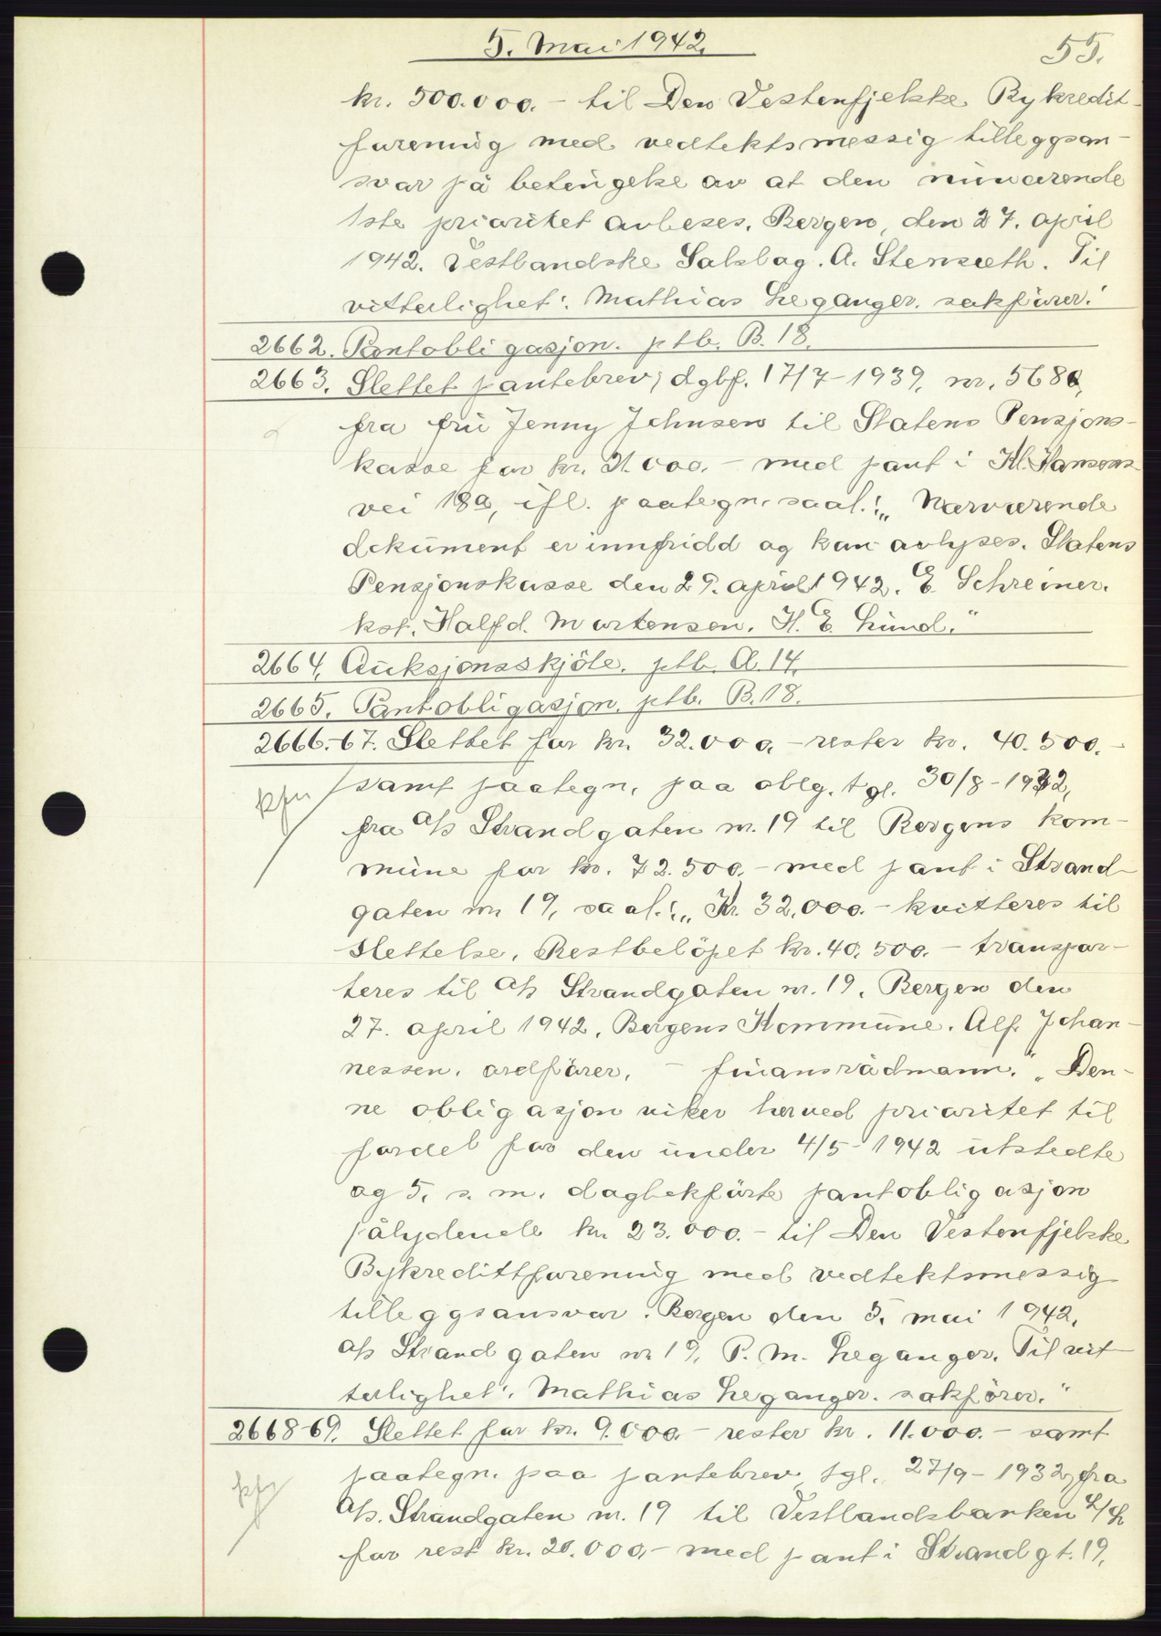 5. Mai 1942.
55.
kr. 500.000.- til Den Vestenfjelske Bykredit-
forening med vedtektsmessig tilleggsan-
svar på betingelse av at den nuværende
1ste prioritet avleses. Bergen, den 27. april
1942. Vestlandske Salslag. A. Stenseth. Til
vitterlighet: Mathias Leganger. sakfører."
2662. Pantobligasjon. ptb. B. 18.
2663. Slettet pantebrev, dgbf. 17/7-1939, nr. 5680,
fra fru Jenny Johnsen til Statens Pensjons-
kasse for kr. 21.000.- med pant i Kl. Hansens
vei 18a, ifl. paategn. saal.: „Nærværende
dokument er innfridd og kan avlyses. Statens
Pensjonskasse den 29. april 1942. E. Schreiner.
kst. Halfd. Martensen. H. E. Lund."
2664. Auksjonsskjöte. ptb. A. 14.
2665. Pantobligasjon. ptb. B. 18.
2666-67. Slettet for kr. 32.000.- rester kr. 40.500.-
samt paategn. paa oblg. tgl. 30/8-1932,
fra A/s Strandgaten nr. 19 til Bergens kom-
mune for kr. 72.500.- med pant i Strand-
gaten nr. 19, saal.: „Kr. 32.000.- kvitteres til
slettelse. Restbelöpet kr. 40.500.- transpor-
teres til A/s Strandgaten nr. 19. Bergen den
27. april 1942. Bergens Kommune. Alf. Johan-
nessen. ordförer. - finansrådmann." „Den-
ne obligasjon viker herved prioritet til
fordel for den under 4/5-1942 utstedte
og 5. s. m. dagbokførte pantobligasjon
pålydende kr. 23.000.- til Den Vestenfjelske
Bykredittforening med vedtektsmessig
tilleggsansvar. Bergen den 5. mai 1942.
A/s Strandgaten nr. 19. P. M. Leganger. Til vit-
terlighet: Mathias Leganger. sakförer."
2668-69. Slettet for kr. 9.000.- rester kr. 11.000.- samt
paategn. paa pantebrev tgl. 27/9-1932, fra
A/s. Strandgaten nr. 19 til Vestlandsbanken L/L
for rest kr. 20.000,- med pant i Strandgt. 19,